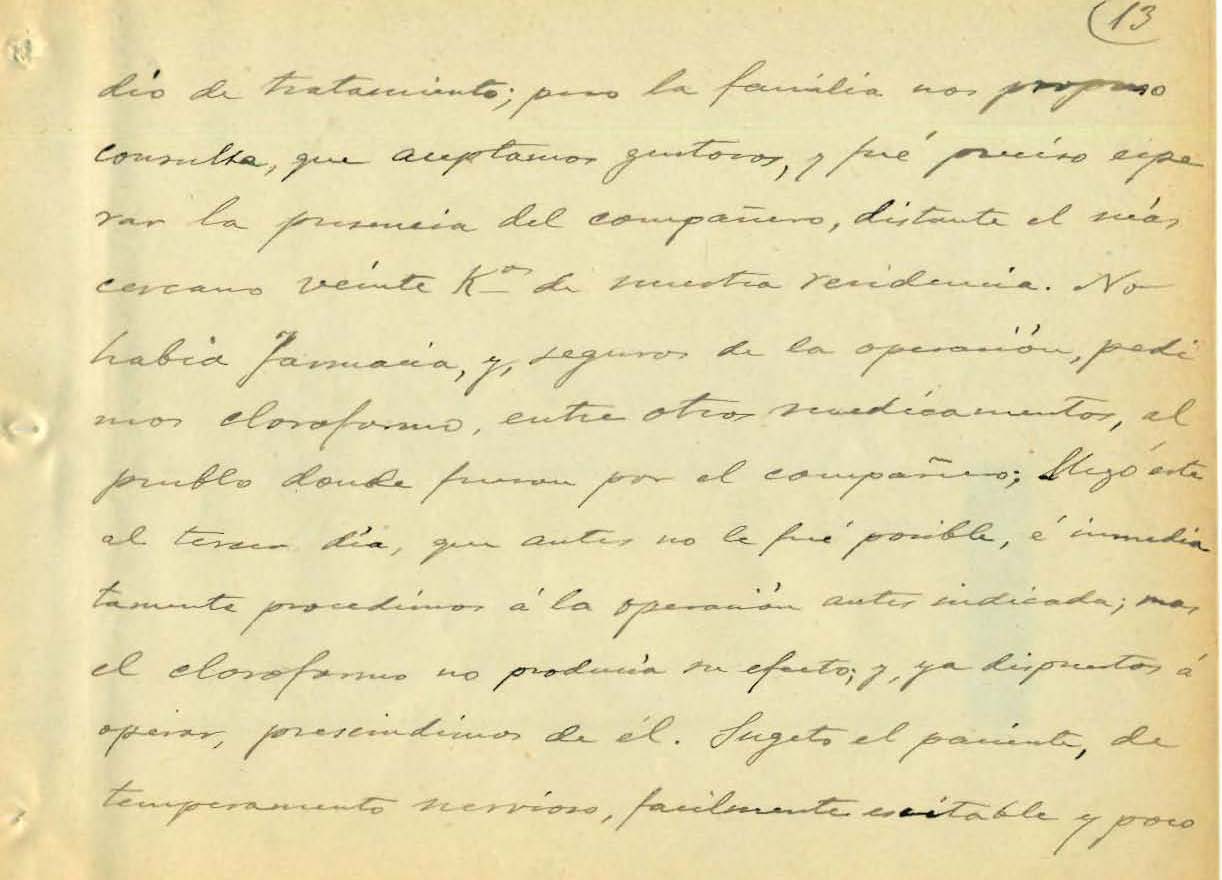 13
dio de tratamiento; pero la familia nos propuso
consulta, que aceptamos gustosos, y fué preciso espe
rar la presencia del compañero, distante el más
cercano veinte Kos de nuestra residencia. No
habia Farmacia, y, seguros de la operación, pedi
mos cloroformo, entre otros medicamentos, al
pueblo donde fueron por el compañero; llegó éste
al tercer dia, que antes no le fué posible, é inmedia
tamente procedimos á la operación antes indicada; mas
el cloroformo no producia su efecto; y, ya dispuestos á
operar, prescindimos de él. Sugeto el paciente, de
temperamento nervioso, facilmente excitable y poco